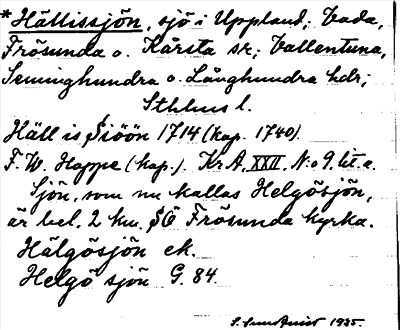 * Hällissjön, sjö i Uppland; Vada,
Frösunda o. Kårsta sr; Vallentuna,
Seminghundra o. Långhundra hdr;
Sthlms l.
Häll is Siöön 1714 (kop. 1740).
F. W. Hoppe (kop.). Kr A, XXII, N:o 9. lit. a.
Sjön, som nu kallas Helgösjön,
är bel. 2 km. SÖ Frösunda kyrka.
Hälgösjön ek.
Helgö sjön G. 84.
S. Sundqvist 1925.